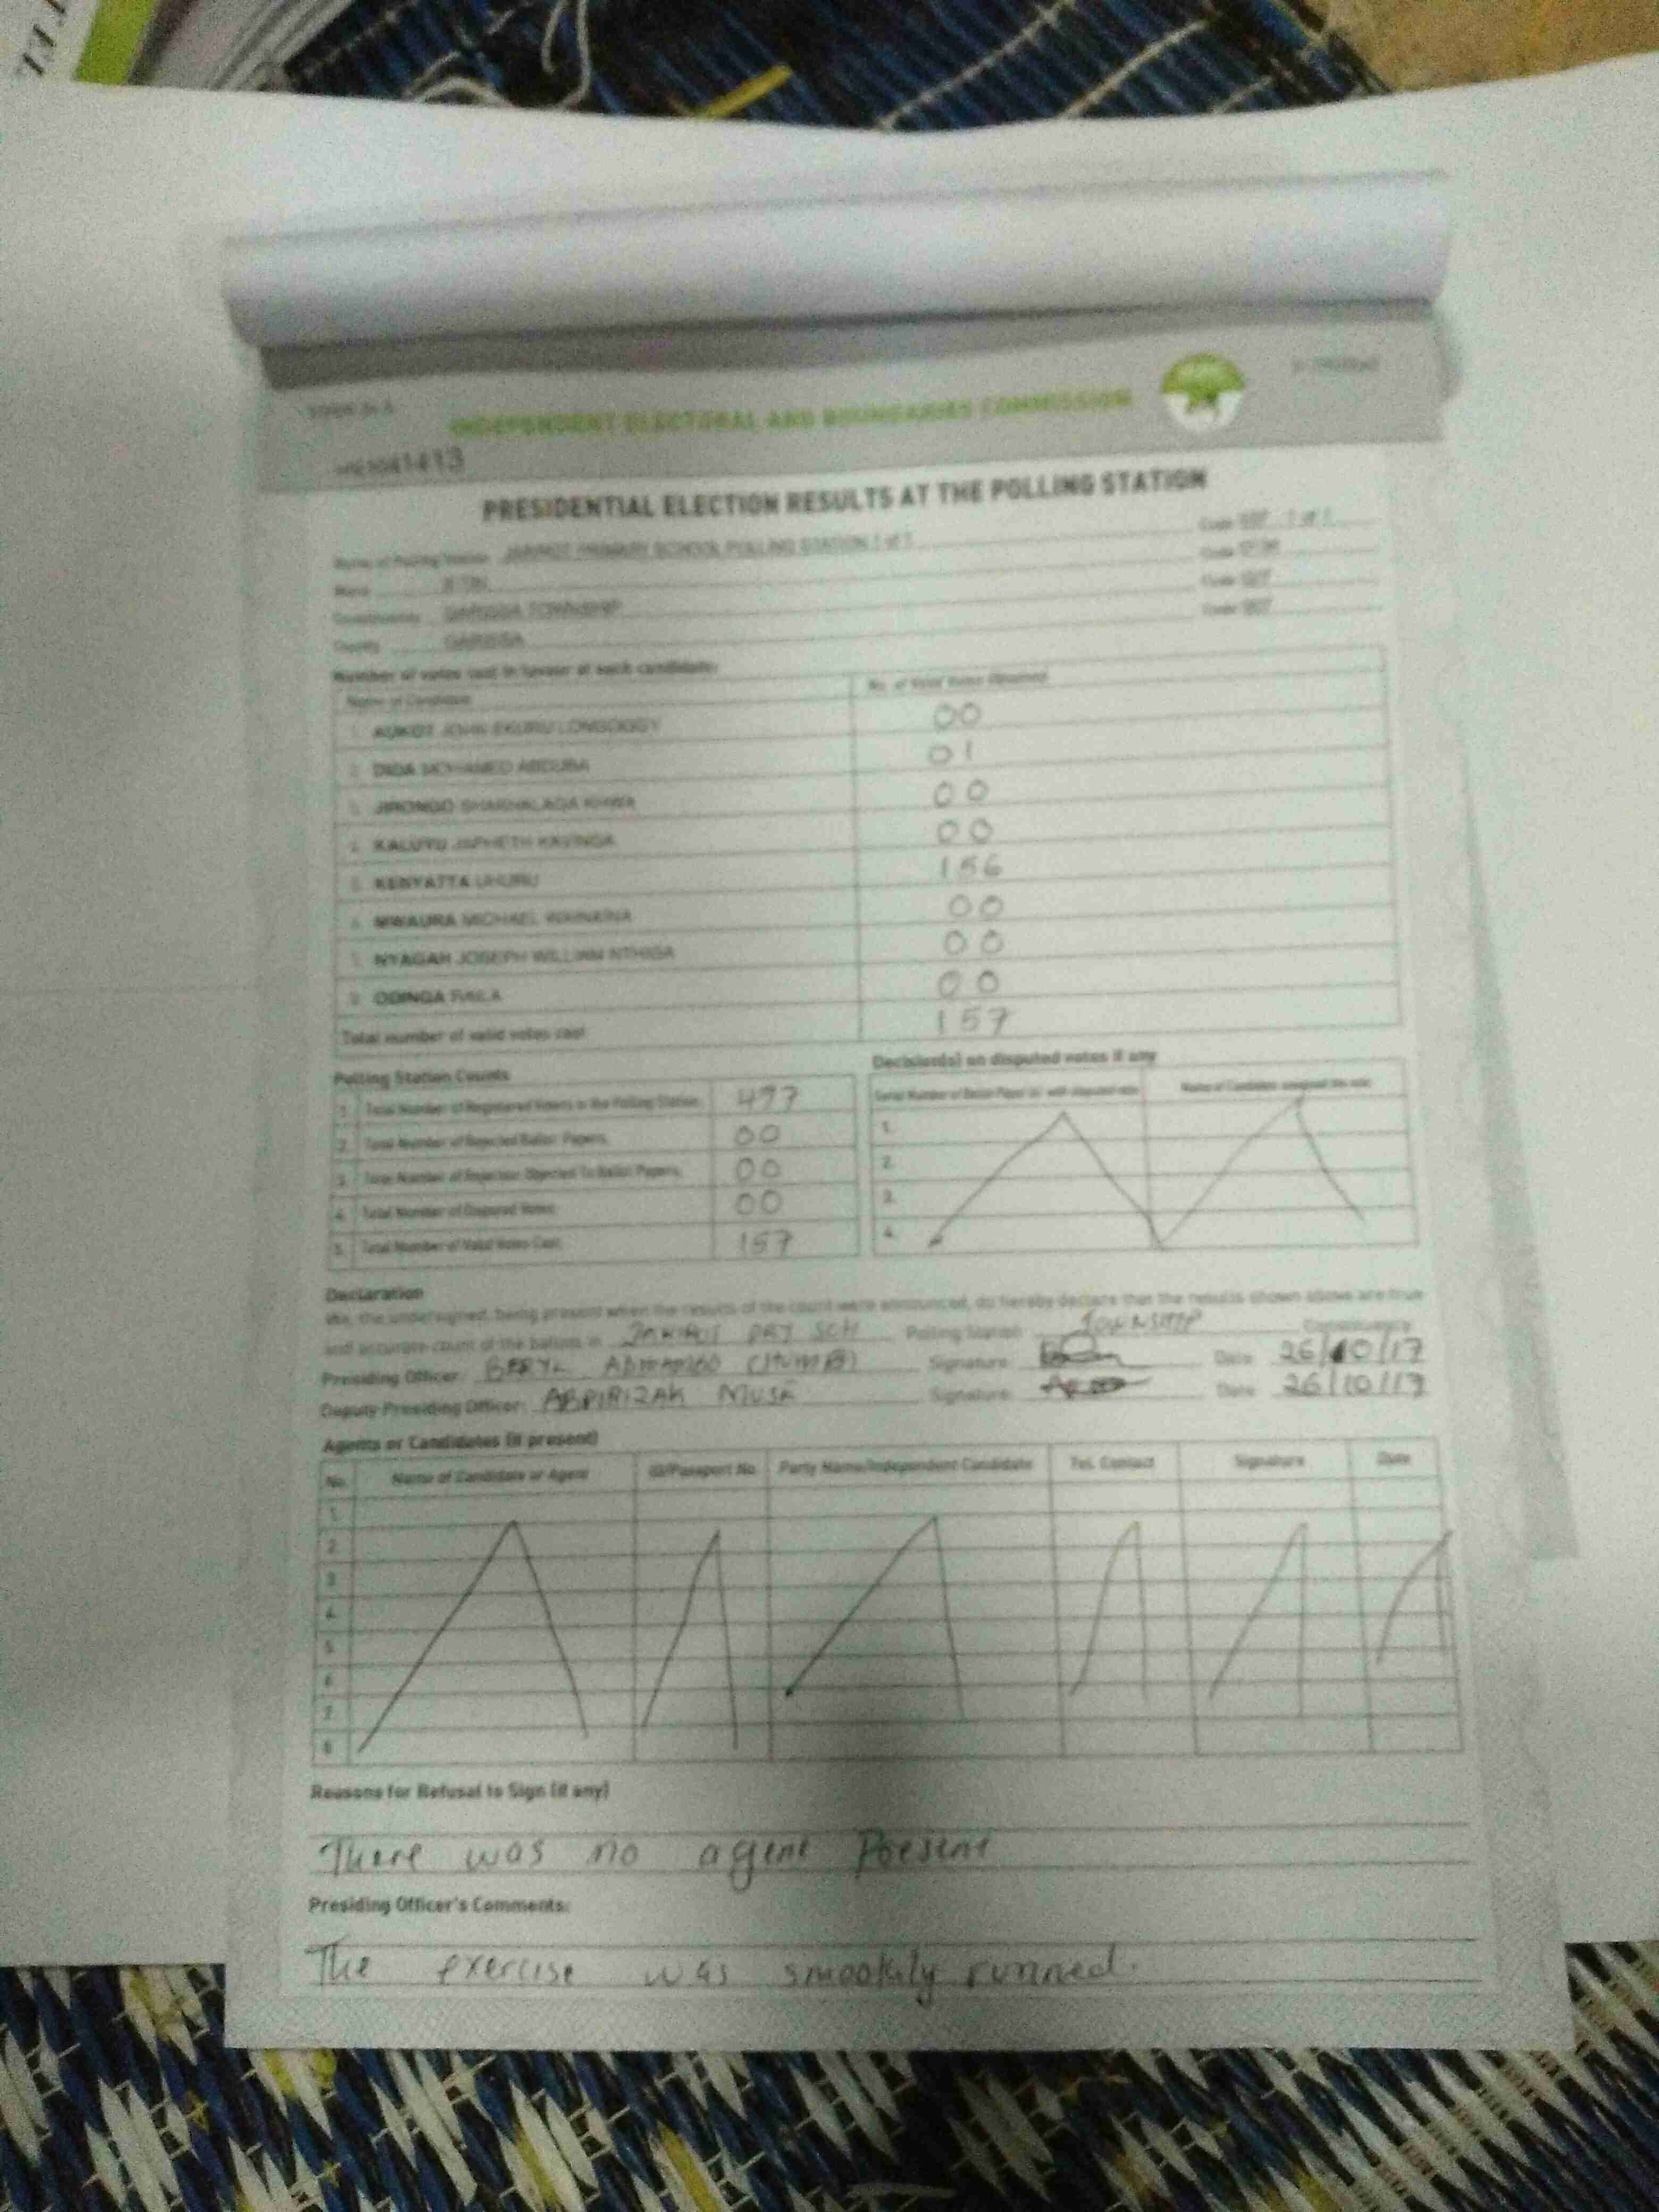 INDEPENDENT ELECTORAL AND BOUNDARIES COMMISSION
PRESIDENTIAL ELECTION RESULTS AT THE POLLING STATION
Name of Polling Station PRIMARY SCHOOL POLLING STATION 1 of 1 Code 1 of 1
Ward Code
Constituency GARISSA TOWNSHIP Code
County GARISSA Code
Number of votes cast in favour of each candidate:
Name of Candidate No. of Valid Votes Obtained
1. AUKOT JOHN EKURU LONGOGGY 00
2. DIDA MOHAMED ABDUBA 01
3. JIRONGO SHAKHALAGA KHWA 00
4. KALUYU JAPHETH KAVINGA 00
5. KENYATTA UHURU 156
6. MWAURA MICHAEL WAINAINA 00
7. NYAGAH JOSEPH WILLIAM NTHIGA 00
8. ODINGA RAILA 00
Total number of valid votes cast 157
Polling Station Counts
1. Total Number of Registered Voters in the Polling Station 497
2. Total Number of Rejected Ballot Papers 00
3. Total Number of Rejection Objected To Ballot Papers 00
4. Total Number of Disputed Votes 00
5. Total Number of Valid Votes Cast 157
Decision(s) on disputed votes if any
Serial Number of Ballot Paper (s) with disputed vote Name of Candidate assigned the vote
1.
2.
3.
4.
Declaration
We, the undersigned, being present when the results of the count were announced, do hereby declare that the results shown above are true
and accurate count of the ballots in PRY SCH Polling Station TOWNSHIP Constituency
Presiding Officer: BERYL Signature: Date 26/10/17
Deputy Presiding Officer: ABDIRIZAK MUSE Signature: Date 26/10/17
Agents or Candidates (if present)
No. Name of Candidate or Agent ID/Passport No Party Name/Independent Candidate Tel. Contact Signature Date
1
2
3
4
5
6
7
8
Reasons for Refusal to Sign (if any)
There was no agent Present
Presiding Officer's Comments:
The exercise was smoothly runned.